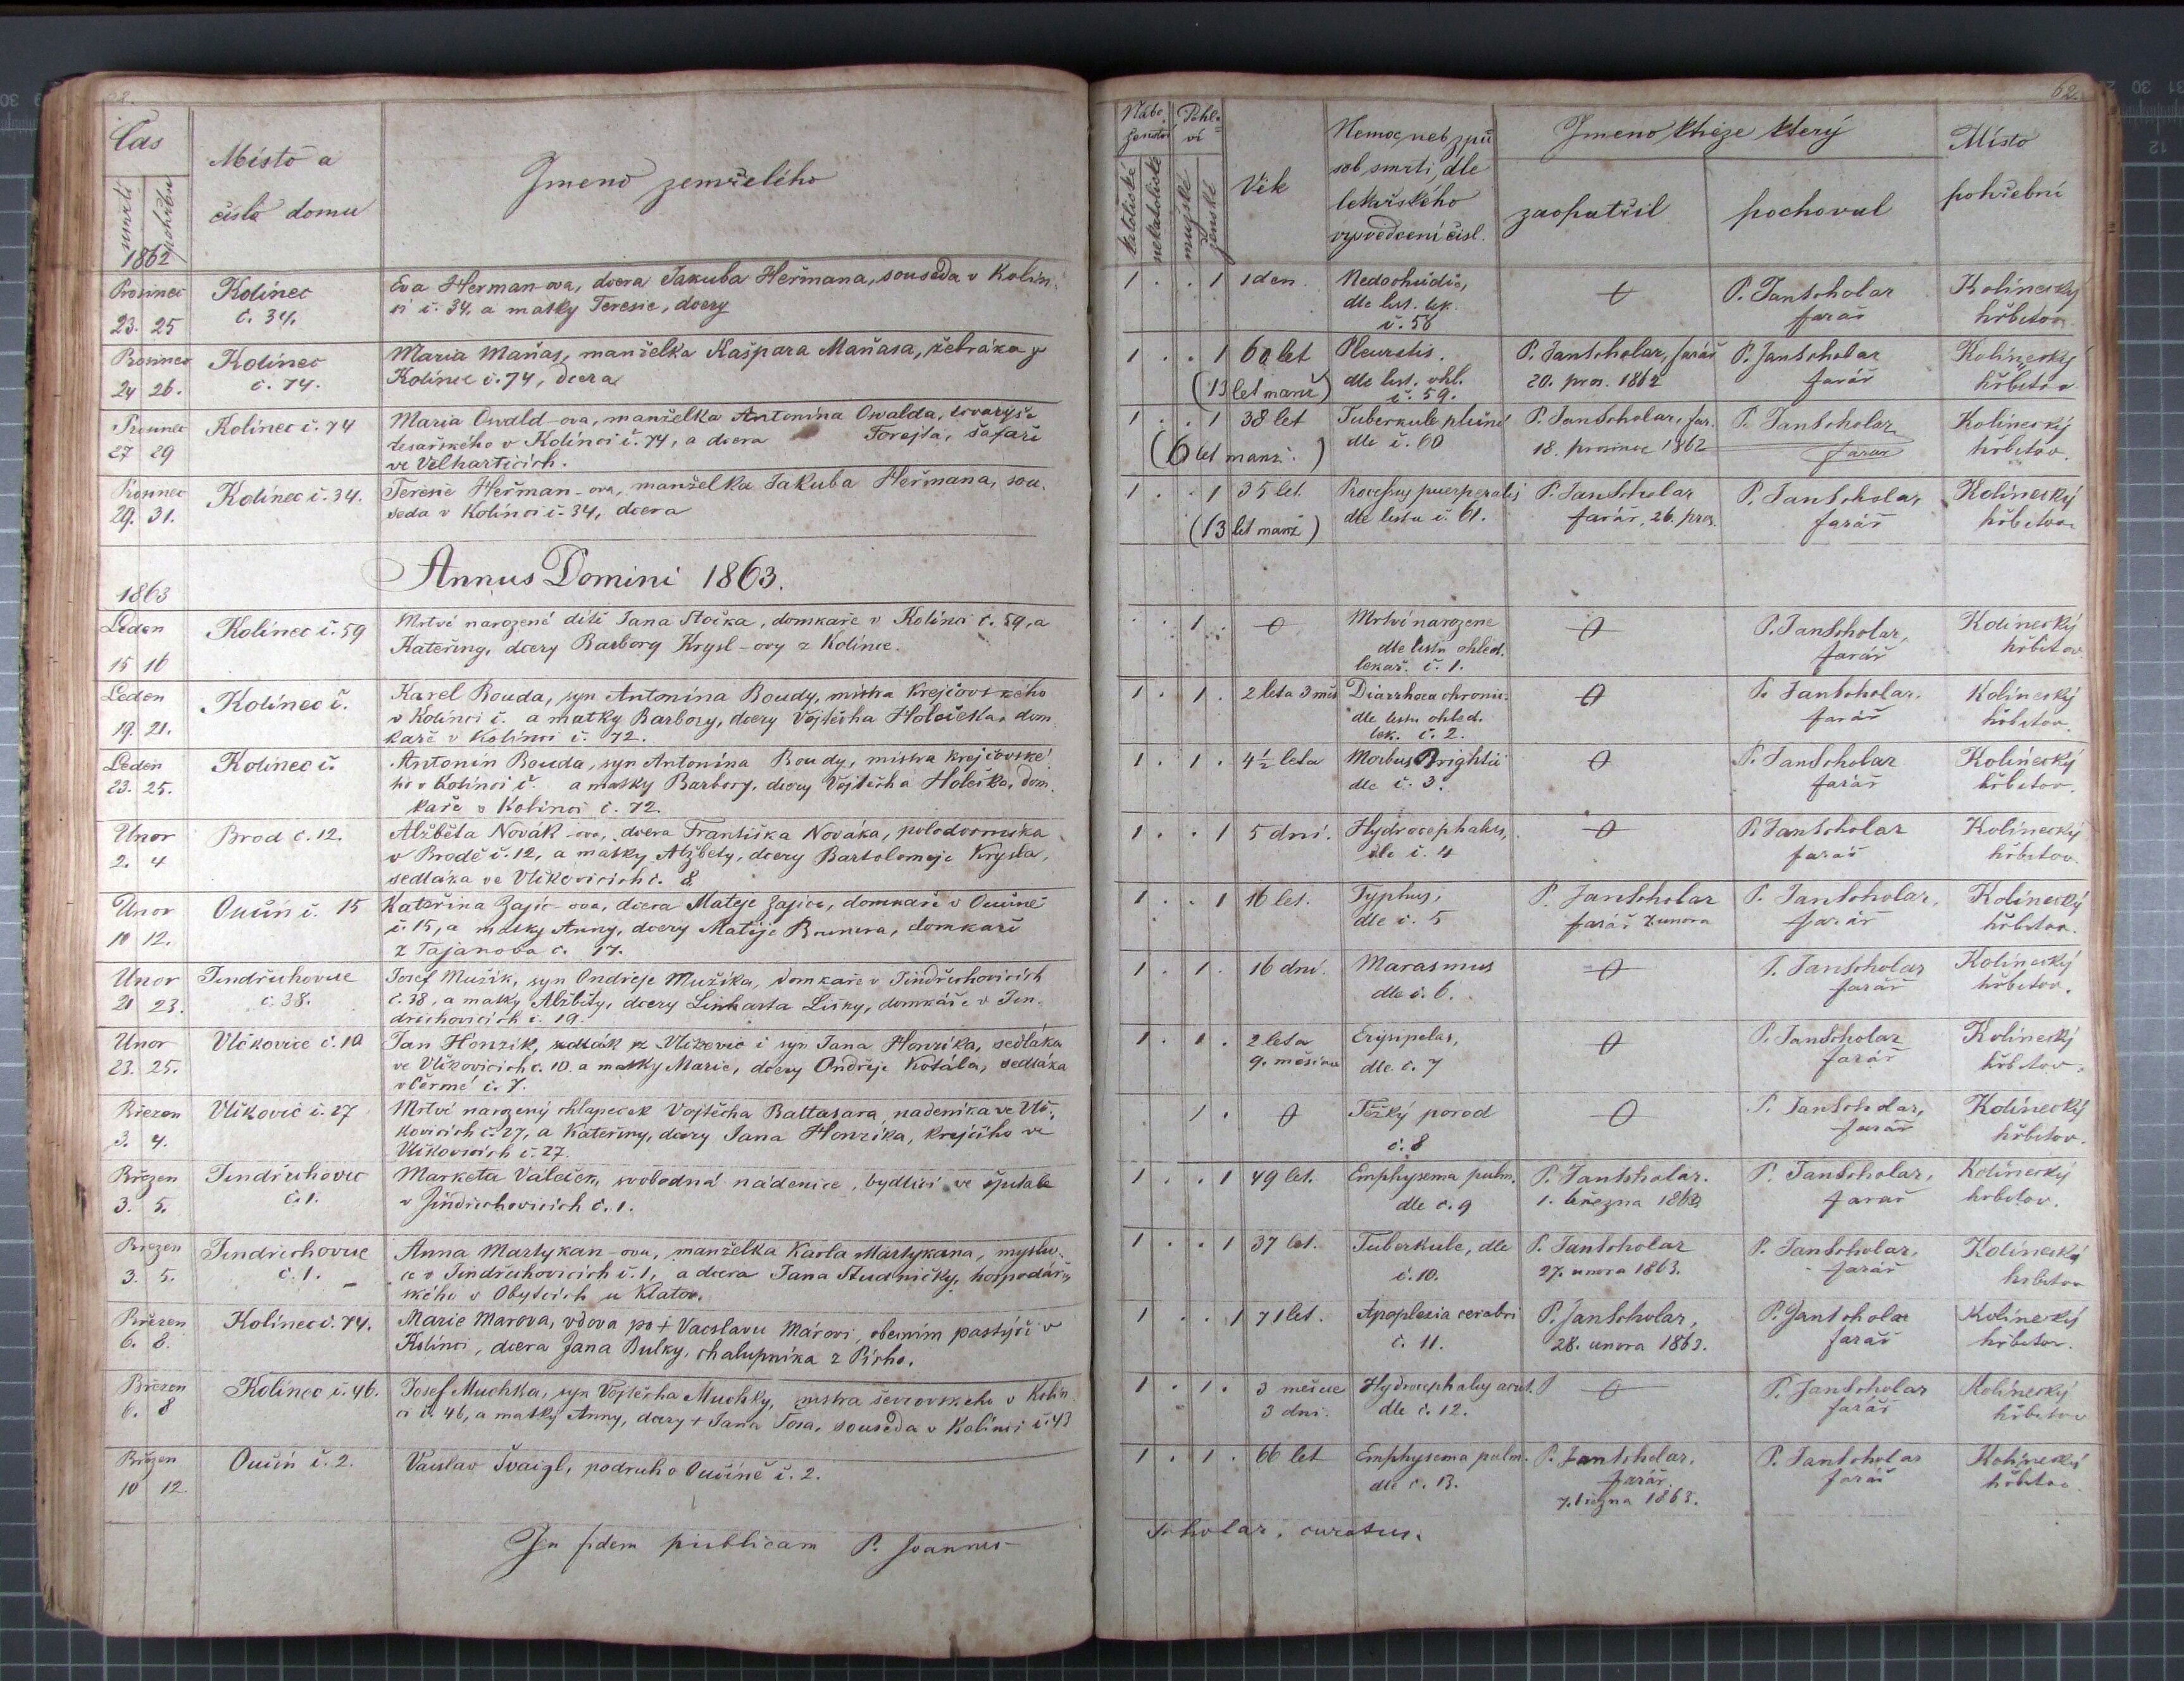 Čas
smrti pohřbu
Místo a
číslo domu
Jmeno zemřelého
1862
Prosinec
23. 25
Kolinec
č. 34.
Eva Heřman-ova, dcera Jakuba Heřmana, souseda v Kolin-
ci č. 34, a matky Teresie, dcery
Prosinec
24 26.
Kolinec
č. 74.
Maria Maňas, manželka Kašpara Maňasa, žebráka z
Kolince č. 74, dcera
Prosinec
27 29
Kolinec č. 74
Maria Oswald-ova, manželka Antonína Oswalda, tovaryše
tesařského v Kolinci č. 74, a dcera Forejta, šafaře
ve Velharticích.
Prosinec
29. 31.
Kolinec č. 34.
Teresie Heřman-ova, manželka Jakuba Heřmana, sou-
seda v Kolinci č. 34, dcera
Annus Domini 1863.
1863
Leden
15 16
Kolinec č. 59
Mrtvé narozené dítě Jana Stočka, domkaře v Kolinci č. 59, a
Kateřiny, dcery Barbory Krysl-ovy z Kolince.
Leden
19. 21.
Kolinec č.
Karel Bouda, syn Antonína Boudy, mistra krejčovského
v Kolinci č. a matky Barbory, dcery Vojtěcha Holečka, dom-
kaře v Kolinci č. 72.
Leden
23. 25.
Kolinec č.
Antonín Bouda, syn Antonína Boudy, mistra krejčovské-
ho v Kolinci č. a matky Barbory, dcery Vojtěcha Holečka, dom-
kaře v Kolinci č. 72.
Unor
2. 4
Brod č. 12.
Alžběta Novák-ova, dcera Františka Nováka, polodvorníka
v Brodě č. 12, a matky Alžběty, dcery Bartoloměje Krysla,
sedláka ve Vlčkovicích č. 8
Unor
10 12.
Oučín č. 15
Kateřina Zajíc-ova, dcera Matěje Zajíce, domkaře v Oučíně
č. 15, a matky Anny, dcery Matěje Brunera, domkaře
z Tajanova č. 17.
Unor
21 23.
Jindřichovice
č. 38.
Josef Mužík, syn Ondřeje Mužíka, domkaře v Jindřichovicích
č. 38, a matky Alžběty, dcery Linharta Lišky, domkáře v Jin-
dřichovicích č. 19.
Unor
23. 25.
Vlčkovice č. 10
Jan Honzík, sedlák z Vlčkovic č syn Jana Honzíka, sedláka
ve Vlčkovicích č. 10 a matky Marie, dcery Ondřeje Kotála, sedláka
v Čermé č. 7.
Březen
3. 4.
Vlčkovic č. 27
Mrtvě narozený chlapeček Vojtěcha Baltasara, nádeníka ve Vlč-
kovicích č. 27, a Kateřiny, dcery Jana Honzíka, krejčího ve
Vlčkovicích č. 27
Březen
3. 5.
Jindřichovic
č. 1.
Marketa Valeček, svobodná nádenice, bydlící ve špitale
v Jindřichovicích č. 1.
Březen
3. 5.
Jindřichovice
č. 1.
Anna Martykan-ova, manželka Karla Martykana, mysliv-
ce v Jindřichovicích č. 1, a dcera Jana Studničky, hospodář-
ského v Obytcích u Klatov.
Březen
6. 8.
Kolinec č. 74.
Marie Marova, vdova po + Vacslavu Márovi, obecním pastýři v
Kolinci, dcera Jana Bulky, chalupníka z Pícho.
Březen
6. 8
Kolinec č. 46.
Josef Muchka, syn Vojtěcha Muchky, mistra ševcovského v Kolin-
ci č. 46, a matky Anny, dcery + Jana Tosa, souseda v Kolinci č. 43
Březen
10 12.
Oučín č. 2.
Vacslav Švaigl, podruh v Oučíně č. 2.
In fidem publicam P. Joannes
62.
Nábo-
ženství
katolické nekatolické
Pohla-
ví
mužské ženské
Věk
Nemoc neb způ-
sob smrti, dle
lekařského
vysvědčení čisl.
Jmeno kněze který
zaopatřil
pochoval
Místo
pohřební
1 . . 1 1 den.
Nedochůdče,
dle list. lek.
č. 58
P. Jan Scholar
farář
Kolinecký
hřbitov
1 . . 1 60 let
(13 let manž)
Pleuritis.
dle list. ohl.
č. 59.
P. Jan Scholar, farář
20. pros. 1862
P. Jan Scholar
farář
Kolinecký
hřbitov
1 . . 1 38 let
(6 let manž.)
Tuberkule plicní
dle č. 60
P. Jan Scholar, far.
18. prosince 1862
P. Jan Scholar
farář
Kolinecký
hřbitov.
1 . . 1 35 let.
(13 let manž)
Processus puerperalis
dle listu č. 61.
P. Jan Scholar
farář, 26. pros.
P. Jan Scholar,
farář
Kolinecký
hřbitov
. . 1 . 0
Mrtvě narozené
dle listu ohled.
lekař. č. 1.
0
P. Jan Scholar,
farář
Kolinecký
hřbitov
1 . 1 . 2 leta 3 měs
Diarrhoea chronic.
dle listu ohled.
lek. č. 2.
0
P. Jan Scholar,
farář
Kolinecký
hřbitov.
1 . 1 . 4 1/2 leta
Morbus Brightii
dle č. 3.
0
P. Jan Scholar
farář
Kolinecký
hřbitov.
1 . . 1 5 dní.
Hydrocephalus,
dle č. 4
0
P. Jan Scholar
farář
Kolinecký
hřbitov.
1 . . 1 16 let.
Typhus,
dle č. 5
P. Jan Scholar
farář 7. unora
P. Jan Scholar,
farář
Kolinecký
hřbitov.
1 . 1 . 16 dní.
Marasmus
dle č. 6.
0
P. Jan Scholar
farář
Kolinecký
hřbitov.
1 . 1 . 2 leta
9. měsíců
Erysipelas,
dle č. 7
0
P. Jan Scholar
farář
Kolinecký
hřbitov.
1 . 0
Těžký porod
č. 8
0
P. Jan Scholar,
farář
Kolinecký
hřbitov.
1 . . 1 49 let.
Emphysema pulm.
dle č. 9
P. Jan Scholar.
1. března 1863
P. Jan Scholar,
farář
Kolinecký
hřbitov.
1 . . 1 37 let.
Tuberkule, dle
č. 10.
P. Jan Scholar
27. unora 1863.
P. Jan Scholar,
farář
Kolinecký
hřbitov
1 . . 1 71 let.
Apoplexia cerebri
č. 11.
P. Jan Scholar,
28. unora 1863.
P. Jan Scholar
farář
Kolinecký
hřbitov.
1 . 1 . 3 měsíce
3 dní.
Hydrocephalus acut.
dle č. 12.
0
P. Jan Scholar
farář
Kolinecký
hřbitov
1 . 1 . 66 let
Emphysema pulm.
dle č. 13.
P. Jan Scholar,
farář
7. března 1863.
P. Jan Scholar
farář
Kolinecký
hřbitov.
Scholar, curatus.